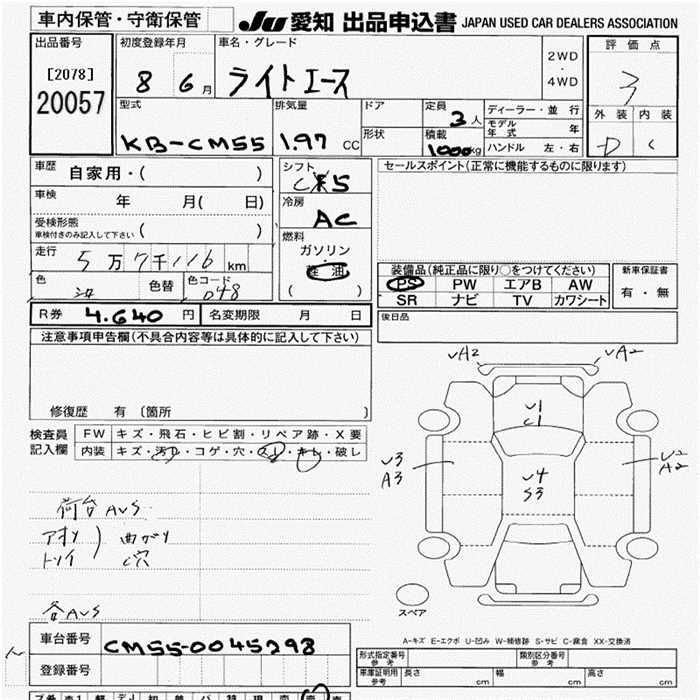 車内保管・守衛保管
JU 愛知 出品申込書 JAPAN USED CAR DEALERS ASSOCIATION
出品番号
[2078]
20057
初度登録年月
8 6月
車名・グレード
ライトエース
2WD
・
4WD
評価点
3
外装 内装
D C
型式
KB-CM55
排気量
1.97 CC
ドア
形状
定員
3人
積載
1000kg
ディーラー・並行
モデル年式 年
ハンドル 左・右
車歴 自家用・( )
車検 年 月( 日)
受検形態
車検付きのみ記入して下さい ( )
走行 5万7千116km
色 色替 色コード
048
シフト
C 5
冷房
AC
燃料
ガソリン
・
軽油
( )
セールスポイント(正常に機能するものに限ります)
装備品(純正品に限り〇をつけてください)
PS PW エアB AW
SR ナビ TV カワシート
新車保証書
有・無
R券 4.640 円 名変期限 月 日
後日品
注意事項申告欄(不具合内容等は具体的に記入して下さい)
修復歴 有 〔箇所 〕
検査員
記入欄
FW キズ・飛石・ヒビ割・リペア跡・X要
内装 キズ・汚レ・コゲ・穴・スレ・キレ・破レ
荷台AUS
アオリ
トリイ
曲がり
C穴
各AUS
UA2 UA2
U1
C1
U3
A3
U4
S3
U2
A2
スペア
A-キズ E-エクボ U-凹み W-補修跡 S-サビ C-腐食 XX-交換済
車台番号 CM55-0045298
登録番号
形式指定番号
参考
類別区分番号
参考
車庫証明用
参考
長さ cm 幅 cm 高さ cm